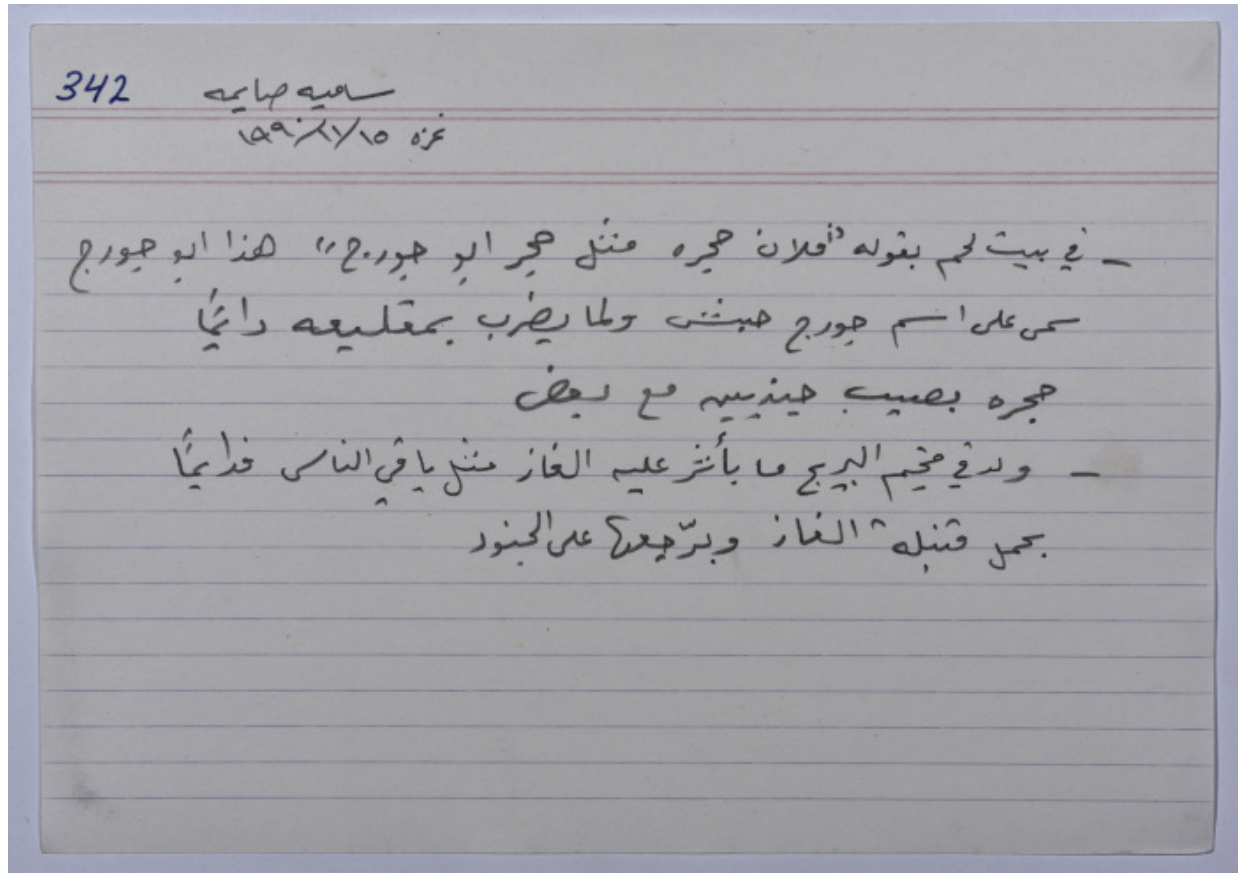 342 سامية صايمه
غزه ١٥/١١/١٩٩٠
- في بيت لحم بقوله "فلان حجره مثل حجر ابو جورج" هذا ابو جورج
سمى على اسم جورج حبش ولما يضرب بمقليعه دائمًا
حجره بصيب جنديين مع بعض
- ولد في مخيم البريج ما بأثر عليه الغاز مثل باقي الناس فدايمًا
بحمل قنبلة الغاز وبرّجعها على الجنود